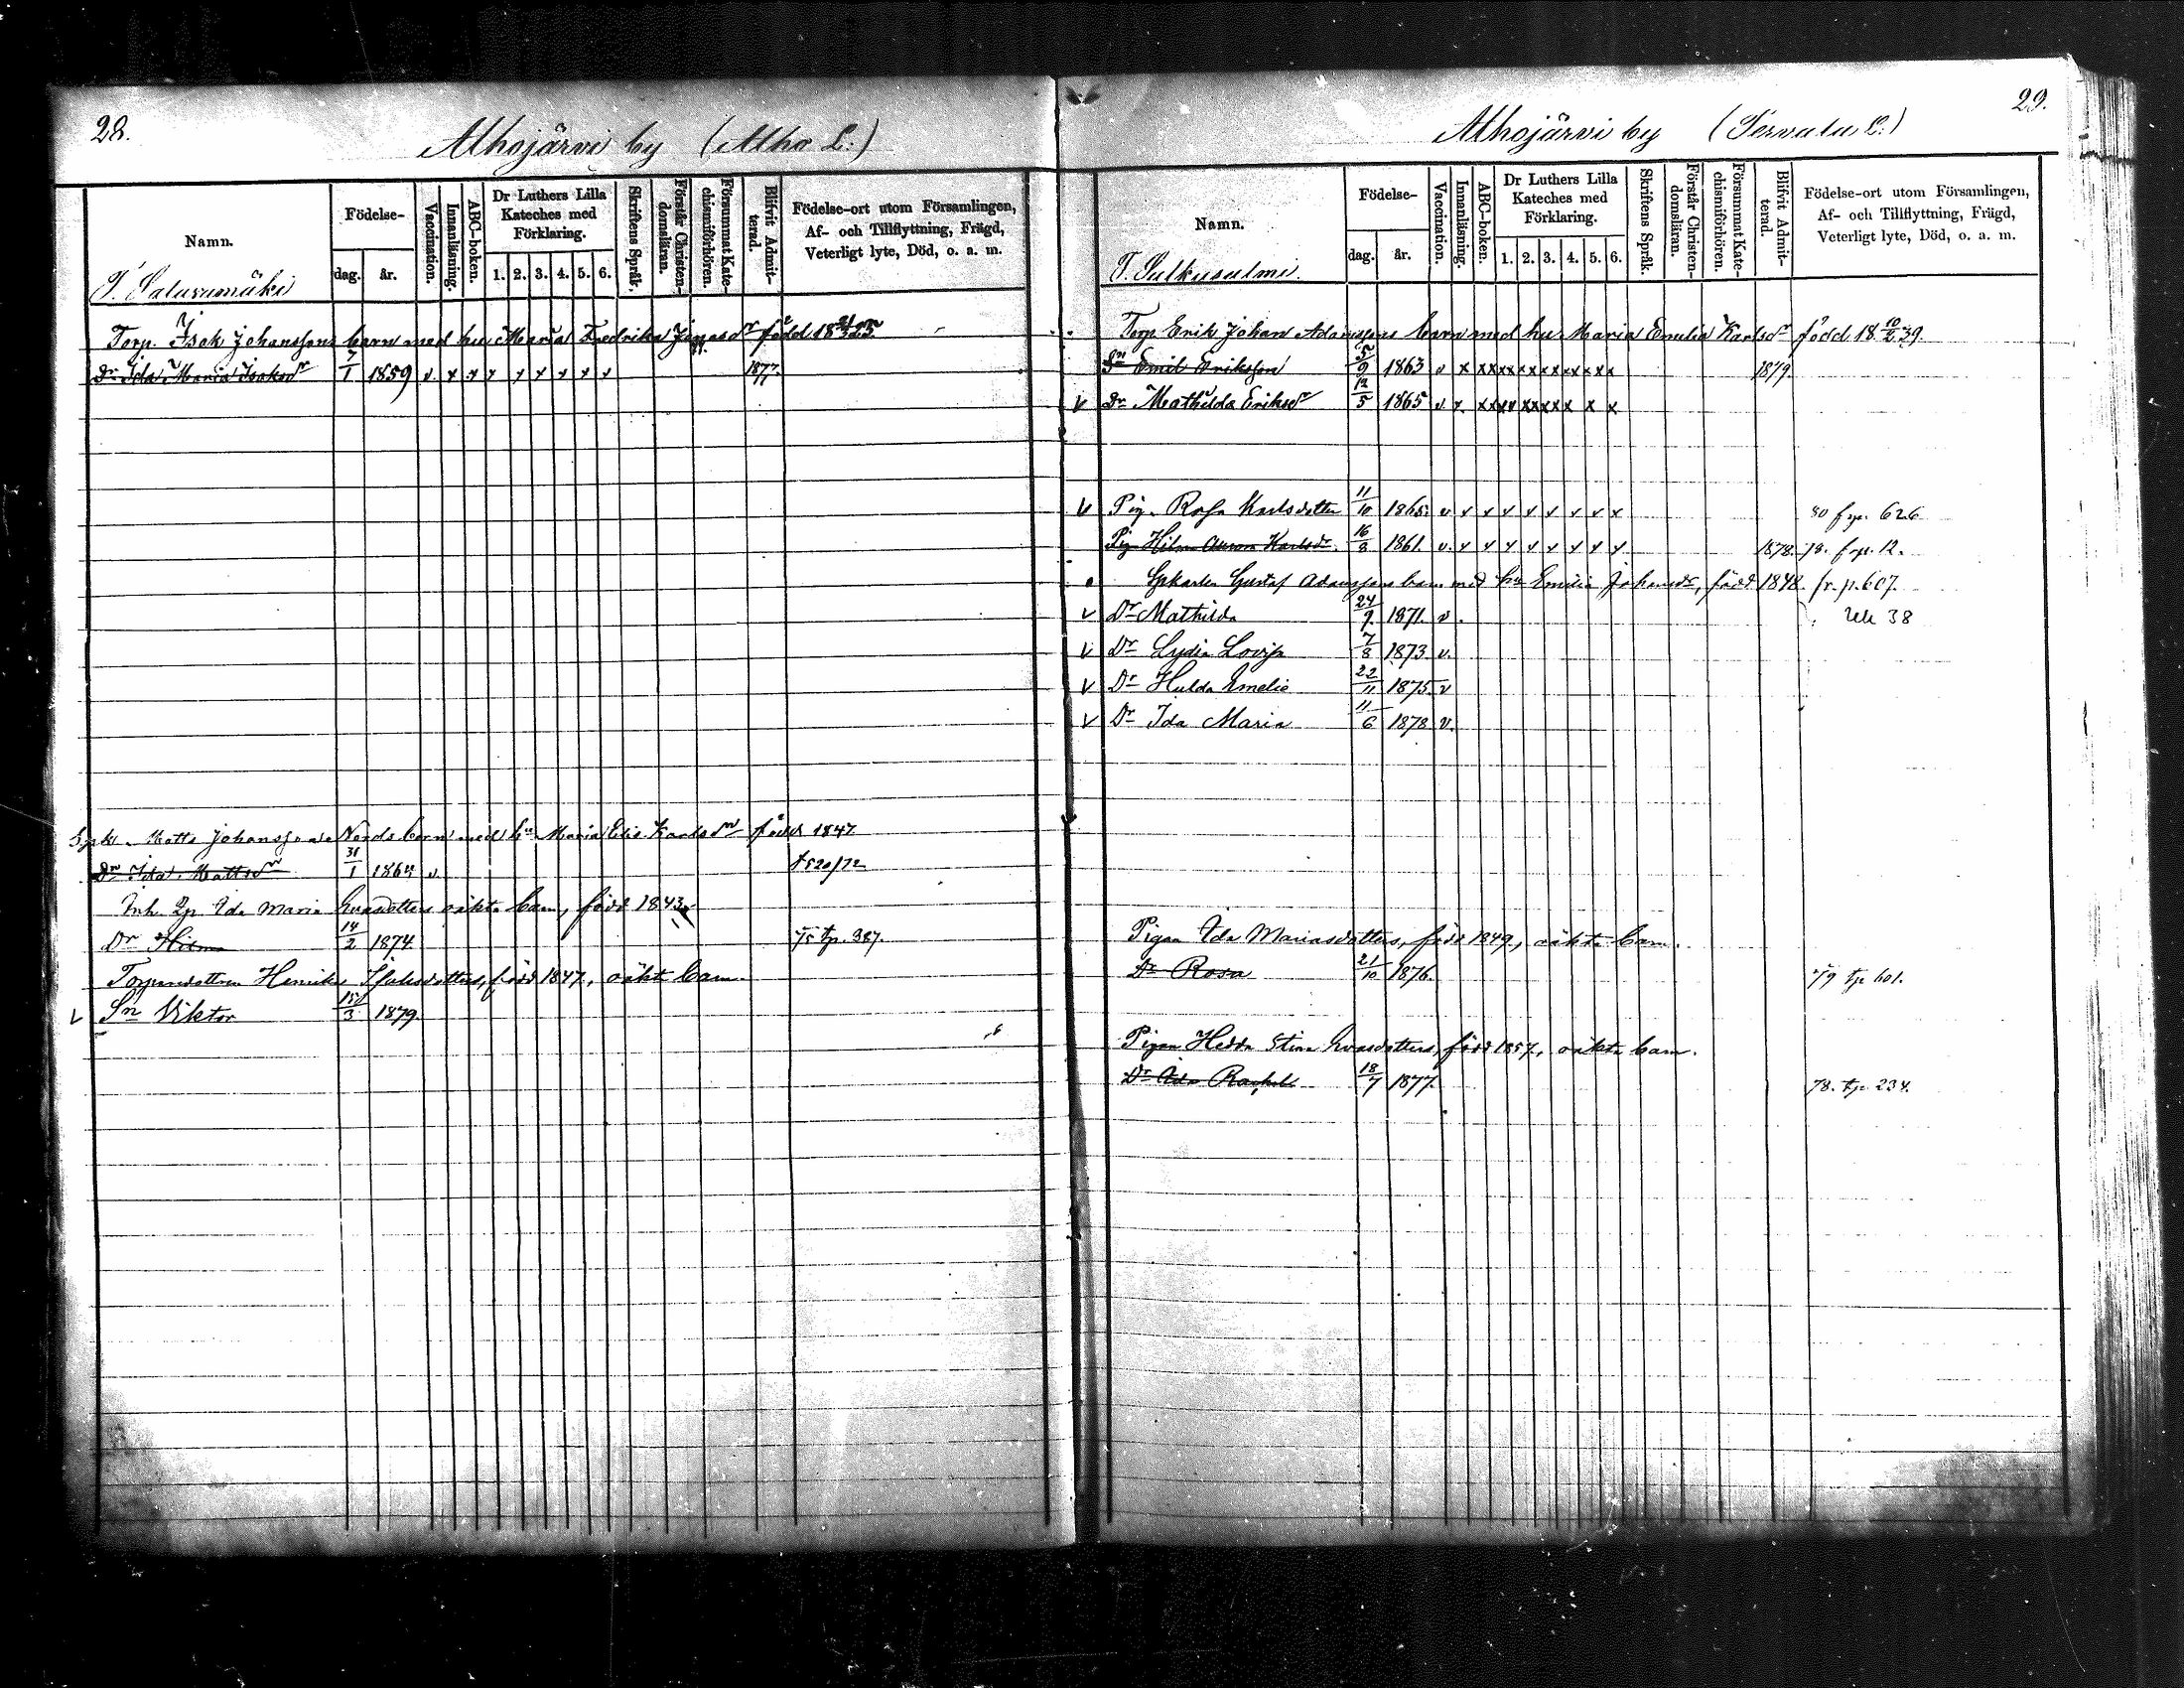 28.
Alhojärvi by (Alho L.)
Namn.
Födelse-
dag.
år.
Vaccination.
Innanläsning.
ABC-boken.
Dr Luthers Lilla
Kateches med
Förklaring.
1. 2. 3. 4. 5. 6.
Skriftens Språk.
Förstår Christen-
domsläran.
Försummat Kate-
chismiförhören.
Blifvit Admit-
terad.
Födelse-ort utom Församlingen,
Af- och Tillflyttning, Frägd,
Veterligt lyte, Död, o. a. m.
Torp. Isak Johanssons barn med hu Maria Fredrika född 18
Dr Ida Maria Isaksdr 7/1 1859 v x x x x x x x x 1877
Matts Johansson Nords barn med hu Maria Karlsdr född 1847
Dr Ida Mattsdr 31/1 1864 v
Inh. Ida Maria Evasdotters oäkta barn, född 1843
Dr Hilma 14/2 1874 75 tp. 387.
född 1847, oäkt barn.
v Sn Viktor /3 1879
29.
Alhojärvi by (Tervala L.)
Namn.
Födelse-
dag.
år.
Vaccination.
Innanläsning.
ABC-boken.
Dr Luthers Lilla
Kateches med
Förklaring.
1. 2. 3. 4. 5. 6.
Skriftens Språk.
Förstår Christen-
domsläran.
Försummat Kate-
chismiförhören.
Blifvit Admit-
terad.
Födelse-ort utom Församlingen,
Af- och Tillflyttning, Frägd,
Veterligt lyte, Död, o. a. m.
T. Sulkusalmi.
Torp Erik Johan Adamssons barn med hu Maria Emilia Karlsdr född 18 10/2 39.
Sn Emil Eriksson 5/9 1863 v x xx xx xx xx xx xx x 1879.
v Dr Mathilda Eriksdr 12/5 1865 v x xx xx xx xx x x x
v Pig. Rosa Karlsdotter 11/10 1865. v x x x x x x x x 80 frp. 626
Pig Hilma Aurora Karlsdr. 16/8 1861. v x x x x x x x x 1878. 78. frp. 12.
Gustaf Adamssons barn med hu Emilia Johansdr, född 1848. fr. p. 607.
v Dr Mathilda 24/9 1871. v. 38
v Dr Lydia Lovisa 7/8 1873 v.
v Dr Hulda Emelie 22/11 1875. v
v Dr Ida Maria 11/6 1878 v.
Pigan Ida Mariasdotters, född 1849, oäkta barn.
Dr Rosa 21/10 1876. 79 tp 601.
Pigan Hedda Stina Evasdotters, född 1857, oäkta barn.
Dr Ida Rachel 18/7 1877. 78. tp. 234.